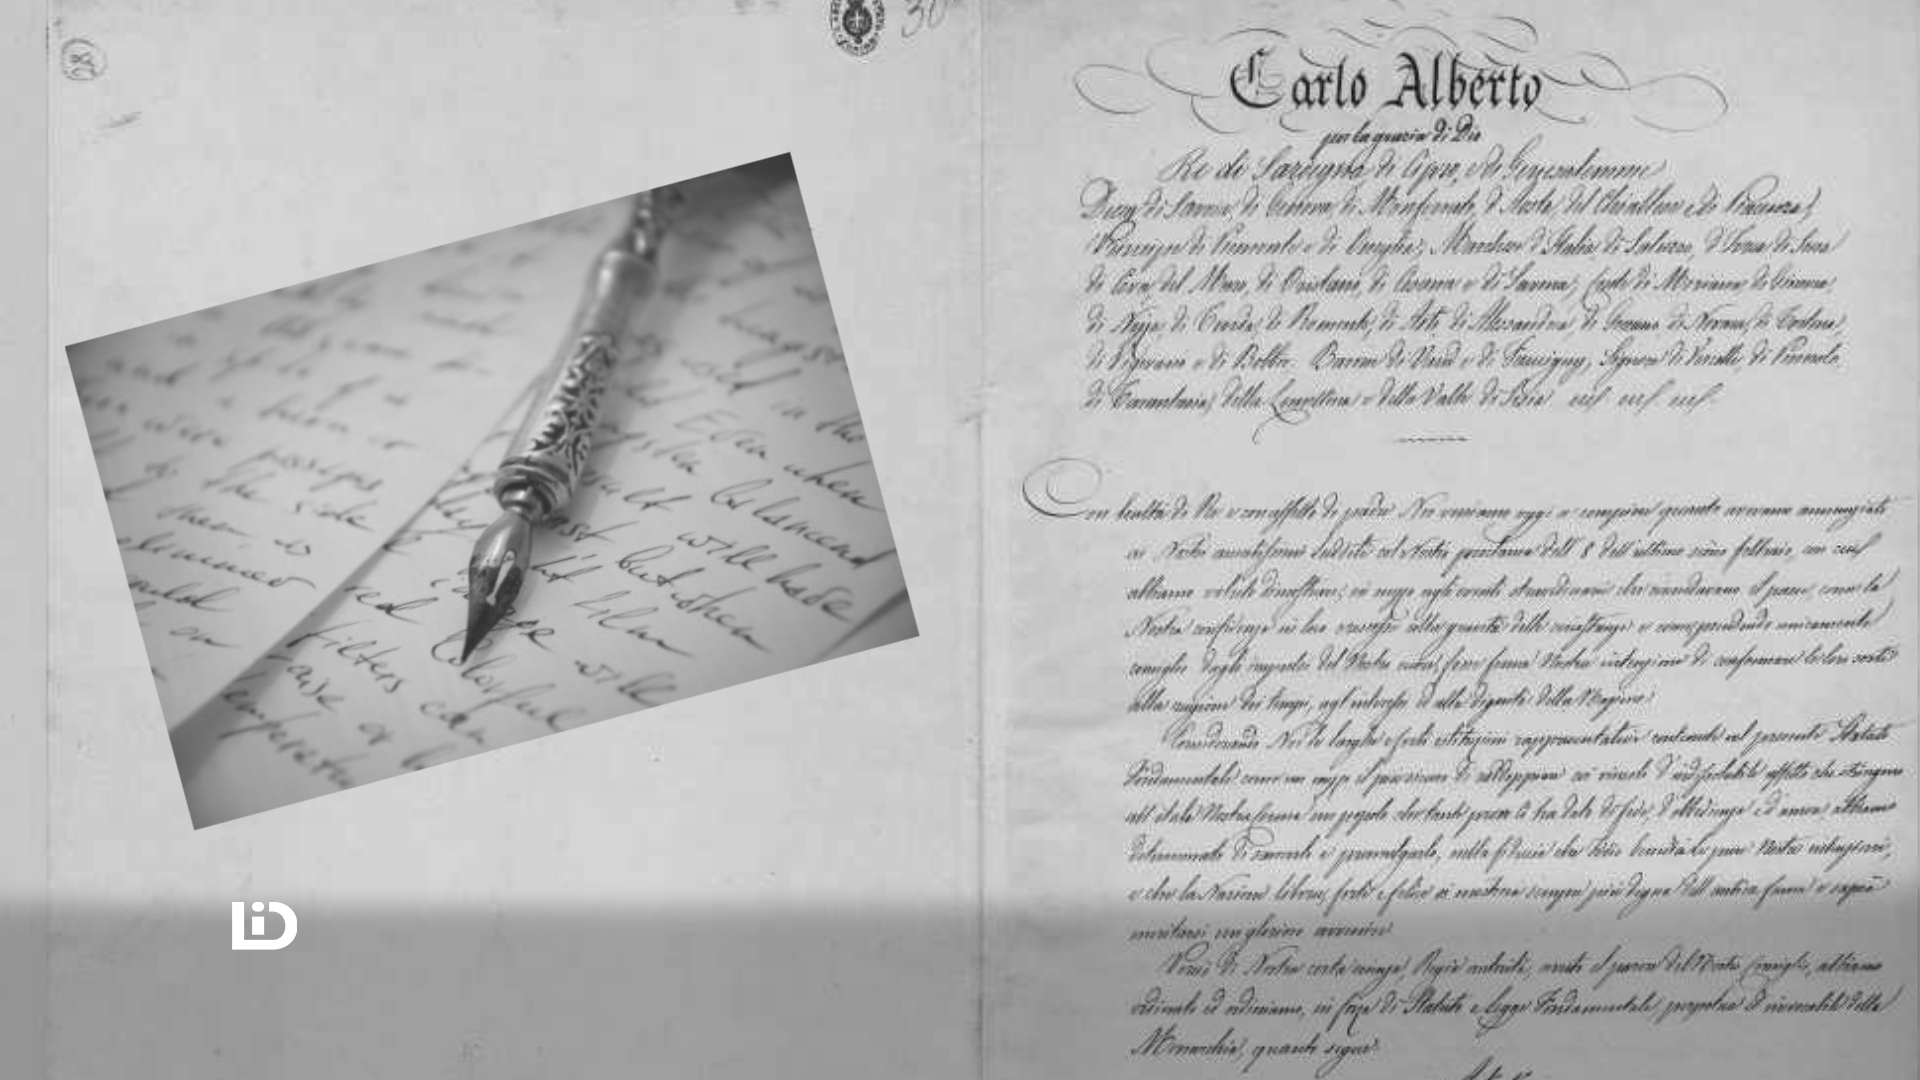 30
LiD
and
were
to the side
them, is
red
filters can
raise or
Colorful
will
Even when
balanced
result will have
but when
film
Carlo Alberto
per la grazia di Dio
Re di Sardegna, di Cipro, e di Gerusalemme
Duca di Savoia, di Genova, di Monferrato, d'Aosta, del Chiablese e di Piacenza;
Principe di Piemonte e di Oneglia; Marchese d'Italia, di Saluzzo, d'Ivrea, di Susa
di Ceva, del Maro, di Oristano, di Cesana e di Savona; Conte di Moriana, di Ginevra,
di Nizza, di Tenda, di Romonte, di Asti, di Alessandria, di Goceano, di Novara, di Tortona,
di Vigevano e di Bobbio. Barone di Vaud e di Faucigny, Signore di Vercelli, di Pinerolo,
di Tarantasia, della Lomellina e della Valle di Sesia
Con lealtà di Re e con affetto di padre Noi veniamo oggi a compiere quanto avevamo annunziato
ai Nostri amatissimi sudditi col Nostro proclama dell'8 dell'ultimo scorso febbraio, con cui
abbiamo voluto dimostrare, in mezzo agli eventi straordinari che circondavano il paese, come la
Nostra confidenza in loro crescesse colla gravità delle circostanze e come prendendo unicamente
consiglio dagli impulsi del Nostro cuore, fosse ferma Nostra intenzione di conformare le loro sorti
alla ragione dei tempi, agl'interessi ed alla dignità della Nazione.
Considerando Noi le larghe e forti istituzioni rappresentative contenute nel presente Statuto
Fondamentale come un mezzo il più sicuro di raddoppiare coi vincoli d'indissolubile affetto che stringono
all'itala Nostra Corona un popolo, che tante prove Ci ha dato di fede, d'obbedienza e d'amore, abbiamo
determinato di sancirlo e promulgarlo, nella fiducia che Iddio benedirà le pure Nostre intenzioni,
e che la Nazione libera, forte e felice si mostrerà sempre più degna dell'antica fama e saprà
meritarsi un glorioso avvenire.
Perciò di Nostra certa scienza, Regia autorità, avuto il parere del Nostro Consiglio, abbiamo
ordinato ed ordiniamo, in forza di Statuto e Legge Fondamentale perpetua ed irrevocabile della
Monarchia, quanto segue: